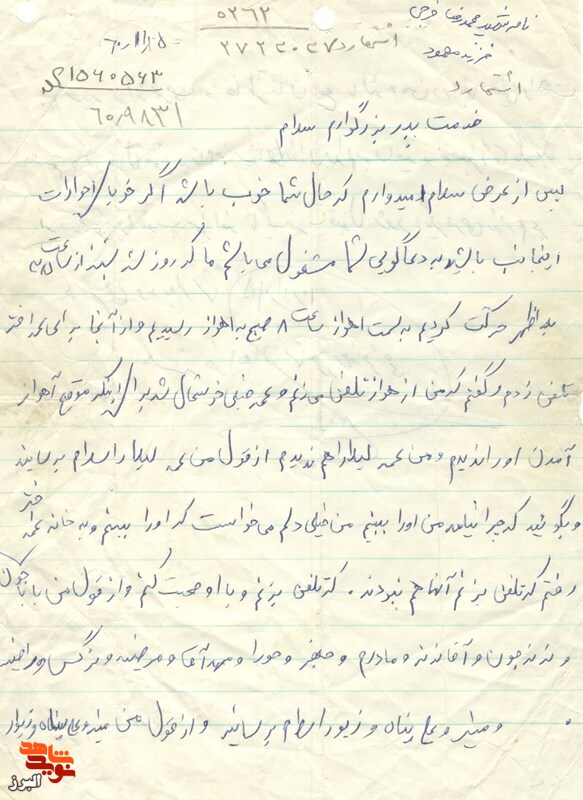 نامه شهید محمدرضا فرجی
فرزند محمود
۵۲۶۲
انتشارد ۲۷۲۳۰۳۷
۶۰/۱۱/۲۵
انتشارد
۱۵۶۰۵۶۳
۶۰/۹۸۳۱
خدمت پدر بزرگوارم سلام
پس از عرض سلام امیدوارم که حال شما خوب باشد اگر خویا احوالات
اینجانب باشید به دعاگویی شما مشغول می باشم ما که روز شنبه از ساعت
بعدازظهر حرکت کردیم به سمت اهواز ساعت ۸ صبح به اهواز رسیدیم و از آنجا برای عمه اختر
تلفن زدم و گفتم که من از اهواز تلفن می زنم و عمه خیلی خوشحال شد برای اینکه موقع آهواز
آمدن او را ندیدم و من عمه لیلا را هم ندیدم از قول من عمه لیلا را سلام برسانید
و بگوئید که چرا نیامد من او را ببینم من خیلی دلم می خواست که او را ببینم و به خانه عمه اختر
رفتم که تلفن بزنم آنها هم نبودند. که تلفن بزنم و با او صحبت کنم و از قول من بابا جون
و ننه جون و آقا ننه و مادرم و جعفر و حورا و مهدآقا و مرضیه و نرگس و راضیه
و منیژه و علی پناه و زیور را سلام برسانید و از قول من منیژه و علی پناه و زیور
شاهد
نوید
البرز